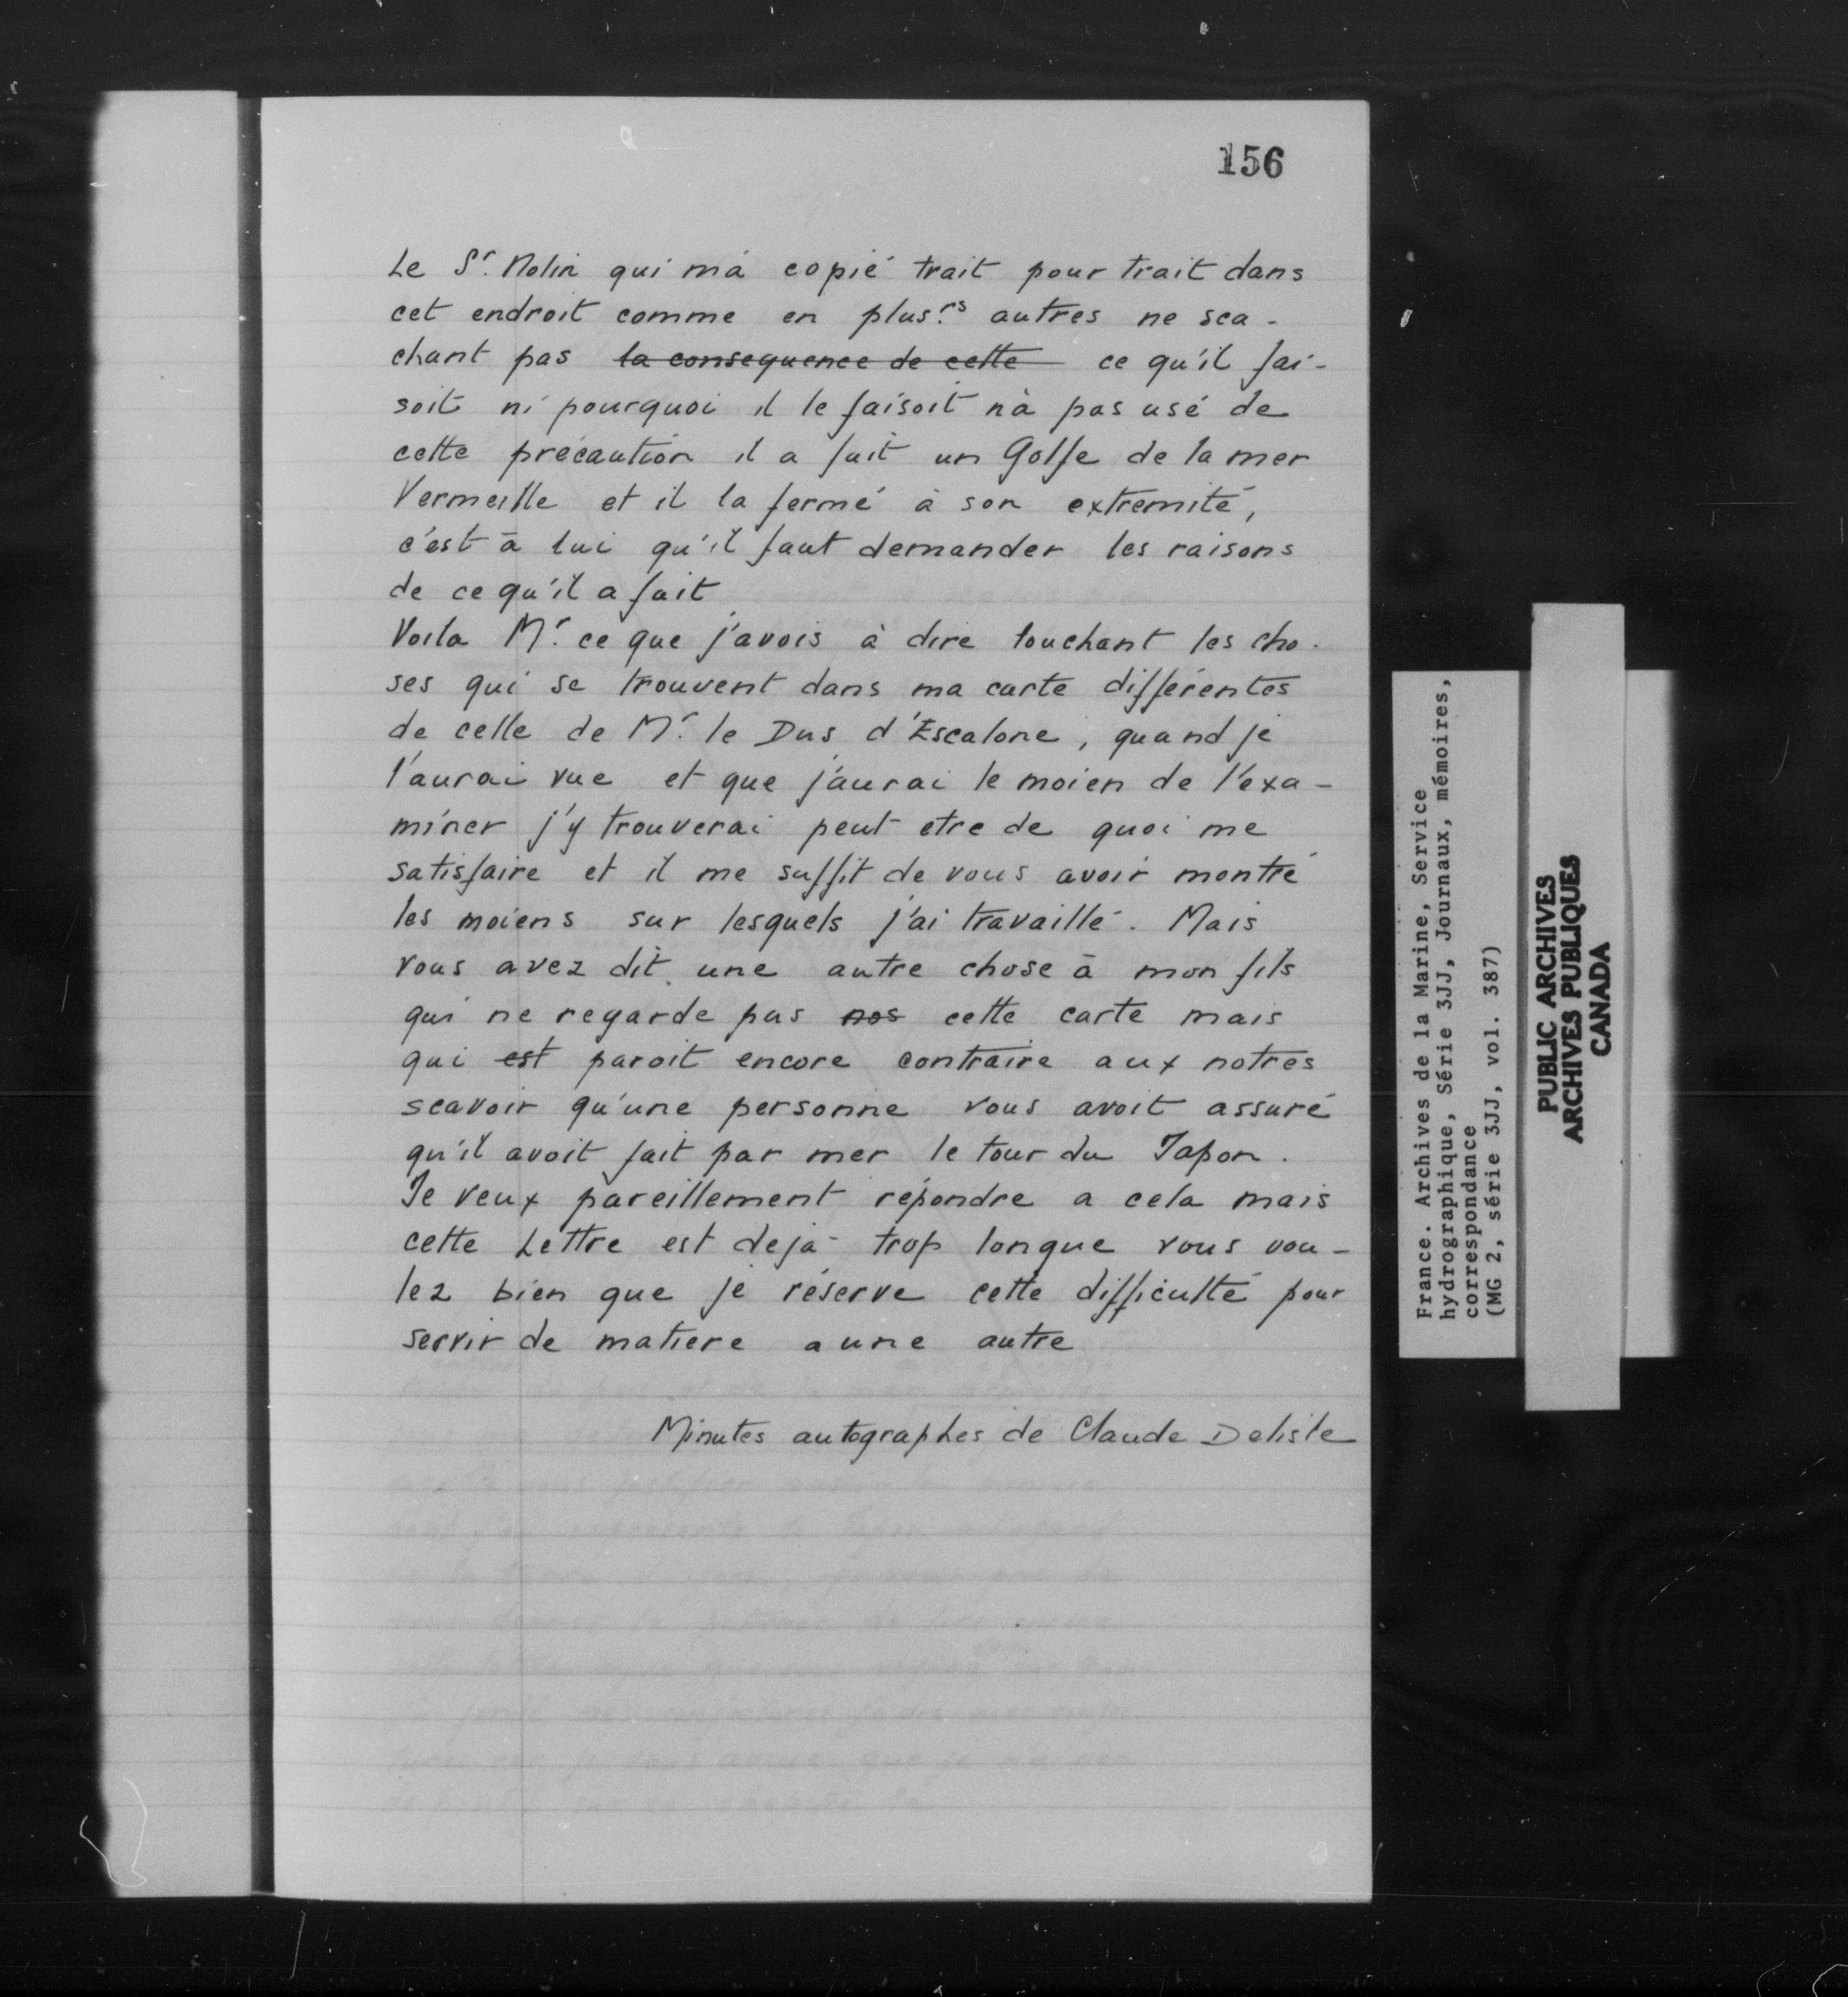 156
Le Sr. Nolin qui m'a copié trait pour trait dans
cet endroit comme en plus.rs autres ne sca-
chant pas la consequence de cette ce qu'il fai-
soit ni pourquoi il le faisoit n'a pas usé de
cette précaution il a fait un Golfe de la mer
Vermeille et il la fermé à son extremité,
c'est à lui qu'il faut demander les raisons
de ce qu'il a fait
Voila Mr. ce que j'avois à dire touchant les cho-
ses qui se trouvent dans ma carte différentes
de celle de Mr. le Dus d'Escalone, quand je
l'aurai vue et que j'aurai le moien de l'exa-
miner j'y trouverai peut etre de quoi me
satisfaire et il me suffit de vous avoir montré
les moiens sur lesquels j'ai travaillé. Mais
vous avez dit une autre chose à mon fils
qui ne regarde pas nos cette carte mais
qui est paroit encore contraire aux notres
scavoir qu'une personne vous avoit assuré
qu'il avoit fait par mer le tour du Japon.
Je veux pareillement répondre a cela mais
cette Lettre est deja trop longue vous vou-
lez bien que je réserve cette difficulté pour
servir de matiere a une autre
Minutes autographes de Claude Delisle
France. Archives de la Marine, Service
hydrographique, Série 3JJ, Journaux, mémoires,
correspondance
(MG 2, série 3JJ, vol. 387)
PUBLIC ARCHIVES
ARCHIVES PUBLIQUES
CANADA